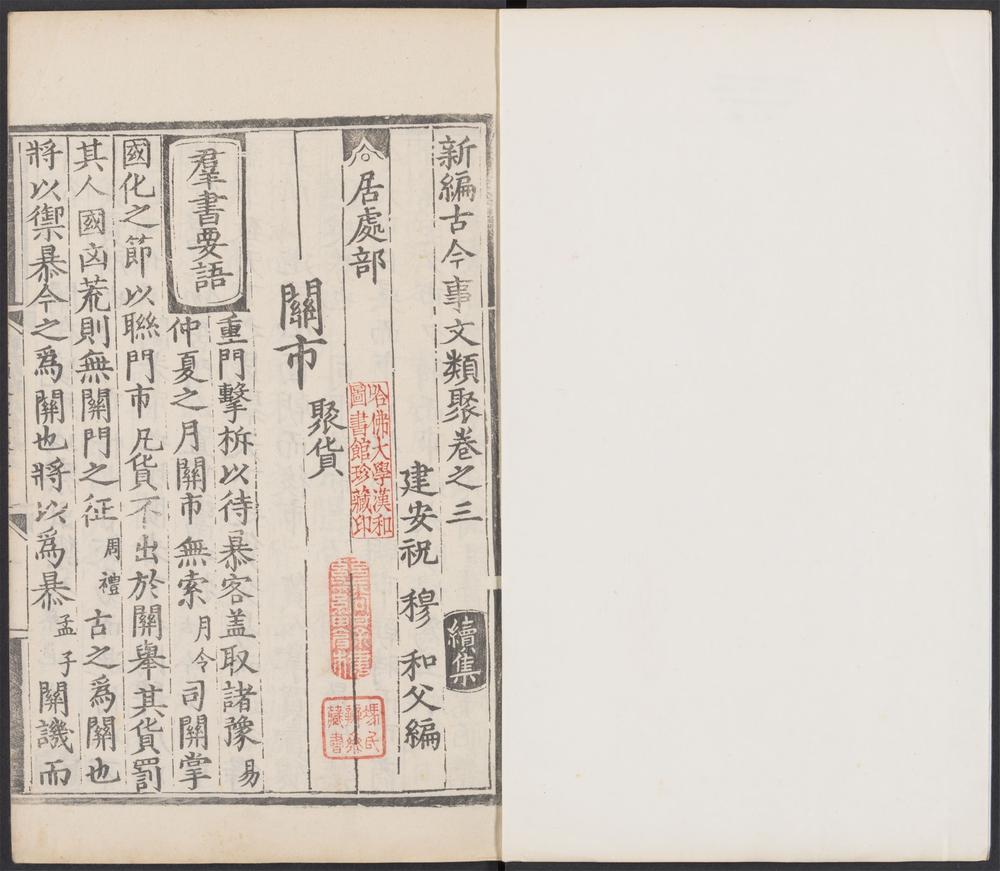 新編古今事文類聚卷之三 續集
建安祝 穆 和父編
居處部
哈佛大學漢和
圖書館珍藏印
聚貨
關市
羣書要語
重門擊柝以待暴客盖取諸豫易
仲夏之月關市無索月令司關掌
國化之節以聯門市凡貨不出於關舉其貨罰
其人國凶荒則無關門之征周禮古之爲關也
將以禦暴今之爲關也將以爲暴孟子關譏而